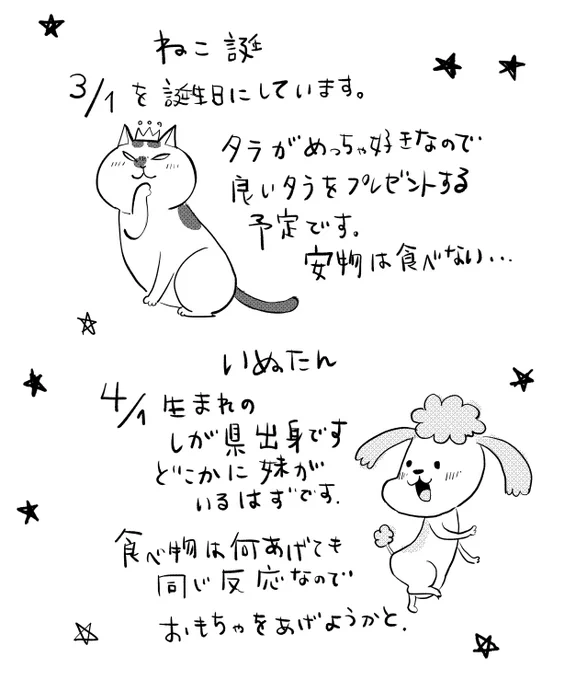 ねこ誕
3/1を誕生日にしています。
タラがめっちゃ好きなので
良いタラをプレゼントする
予定です。
安物は食べない...
いぬたん
4/1生まれの
しが県出身です
どこかに妹が
いるはずです.
食べ物は何あげても
同じ反応なので
おもちゃをあげようかと.